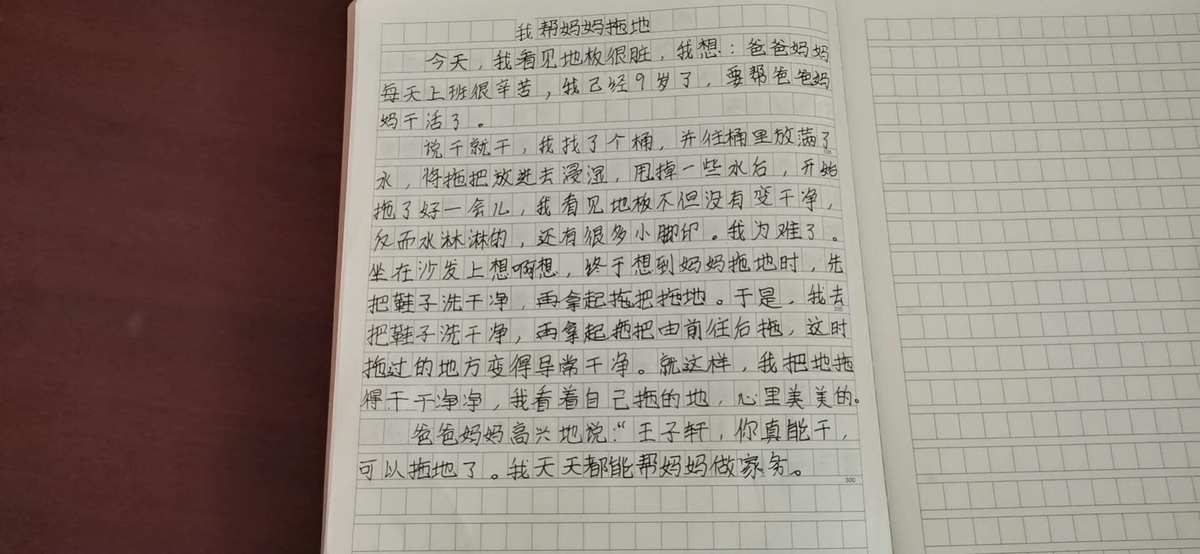 我帮妈妈拖地
今天，我看见地板很脏，我想：爸爸妈妈
每天上班很辛苦，我已经9岁了，要帮爸爸妈
妈干活了。
说干就干，我找了个桶，并往桶里放满了
水，将拖把放进去浸湿，甩掉一些水后，开始
拖了好一会儿，我看见地板不但没有变干净，
反而水淋淋的，还有很多小脚印。我为难了。
坐在沙发上想啊想，终于想到妈妈拖地时，先
把鞋子洗干净，再拿起拖把拖地。于是，我去
把鞋子洗干净，再拿起拖把由前往后拖，这时
拖过的地方变得异常干净。就这样，我把地拖
得干干净净，我看着自己拖的地，心里美美的。
爸爸妈妈高兴地说：“王子轩，你真能干，
可以拖地了。我天天都能帮妈妈做家务。
300